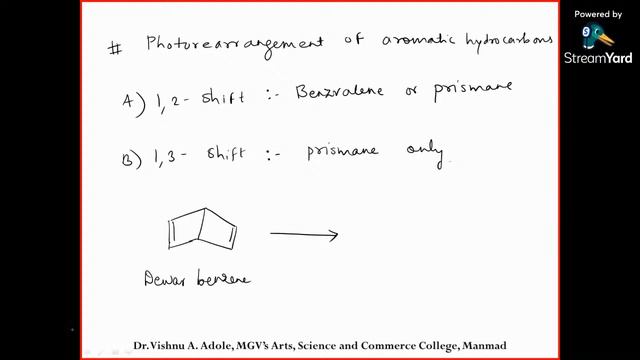 # Photorearrangement of aromatic hydrocarbons
A) 1,2- shift :- Benzvalene or prismane
B) 1,3- shift :- prismane only
Dewar benzene
Dr.Vishnu A. Adole, MGV's Arts, Science and Commerce College, Manmad
Powered by
StreamYard